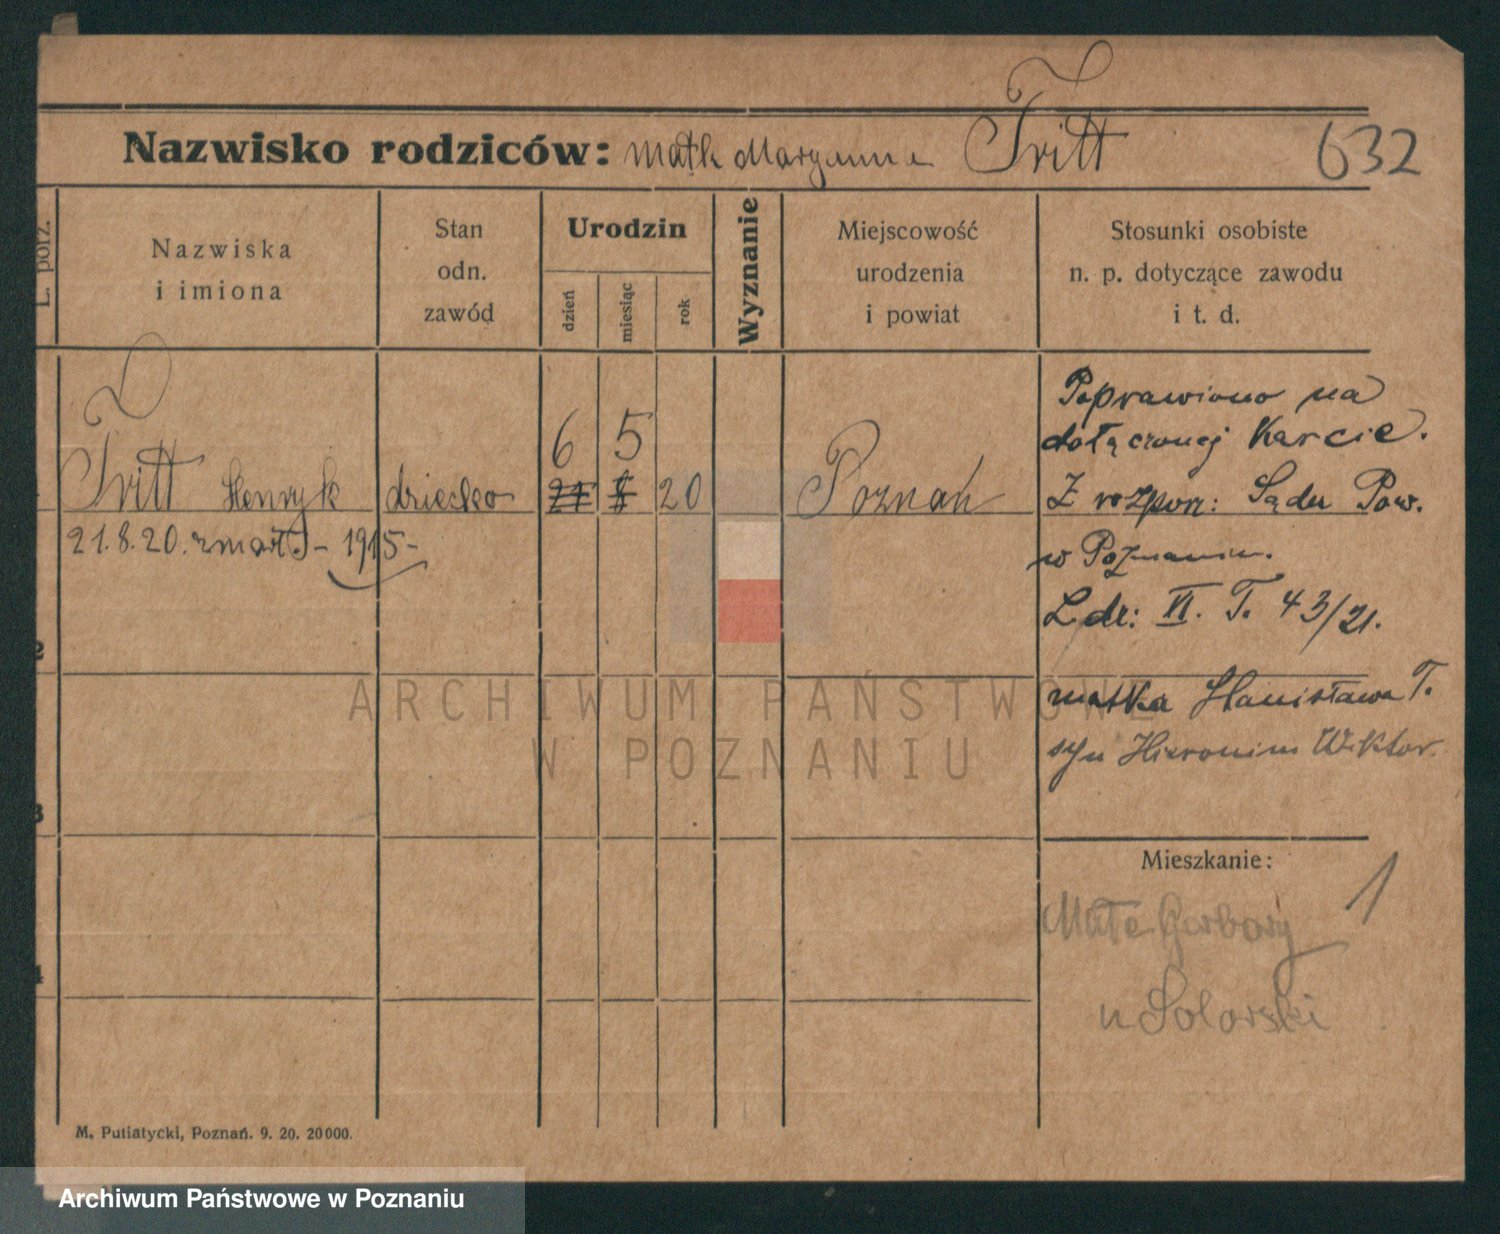 Nazwisko rodziców: matk Maryanna Tritt 632
L. porz.
Nazwiska
i imiona
Stan
odn.
zawód
Urodzin
dzień
miesiąc
rok
Wyznanie
Miejscowość
urodzenia
i powiat
Stosunki osobiste
n. p. dotyczące zawodu
i t. d.
6 5
Tritt Henryk dziecko 21 8 20 Poznań
21.8.20. zmarł - 1915-
Poprawiono na
dołączonej Karcie.
Z rozporz: Sądu Pow.
w Poznaniu.
L. dz: VI. T. 43/21.
matka Stanisława T.
syn Hieronim Wiktor.
2
3
4
Mieszkanie:
Małe Garbary 1
u Solarski
M. Putiatycki, Poznań. 9. 20. 20000.
ARCHIWUM PAŃSTWOWE
W POZNANIU
Archiwum Państwowe w Poznaniu